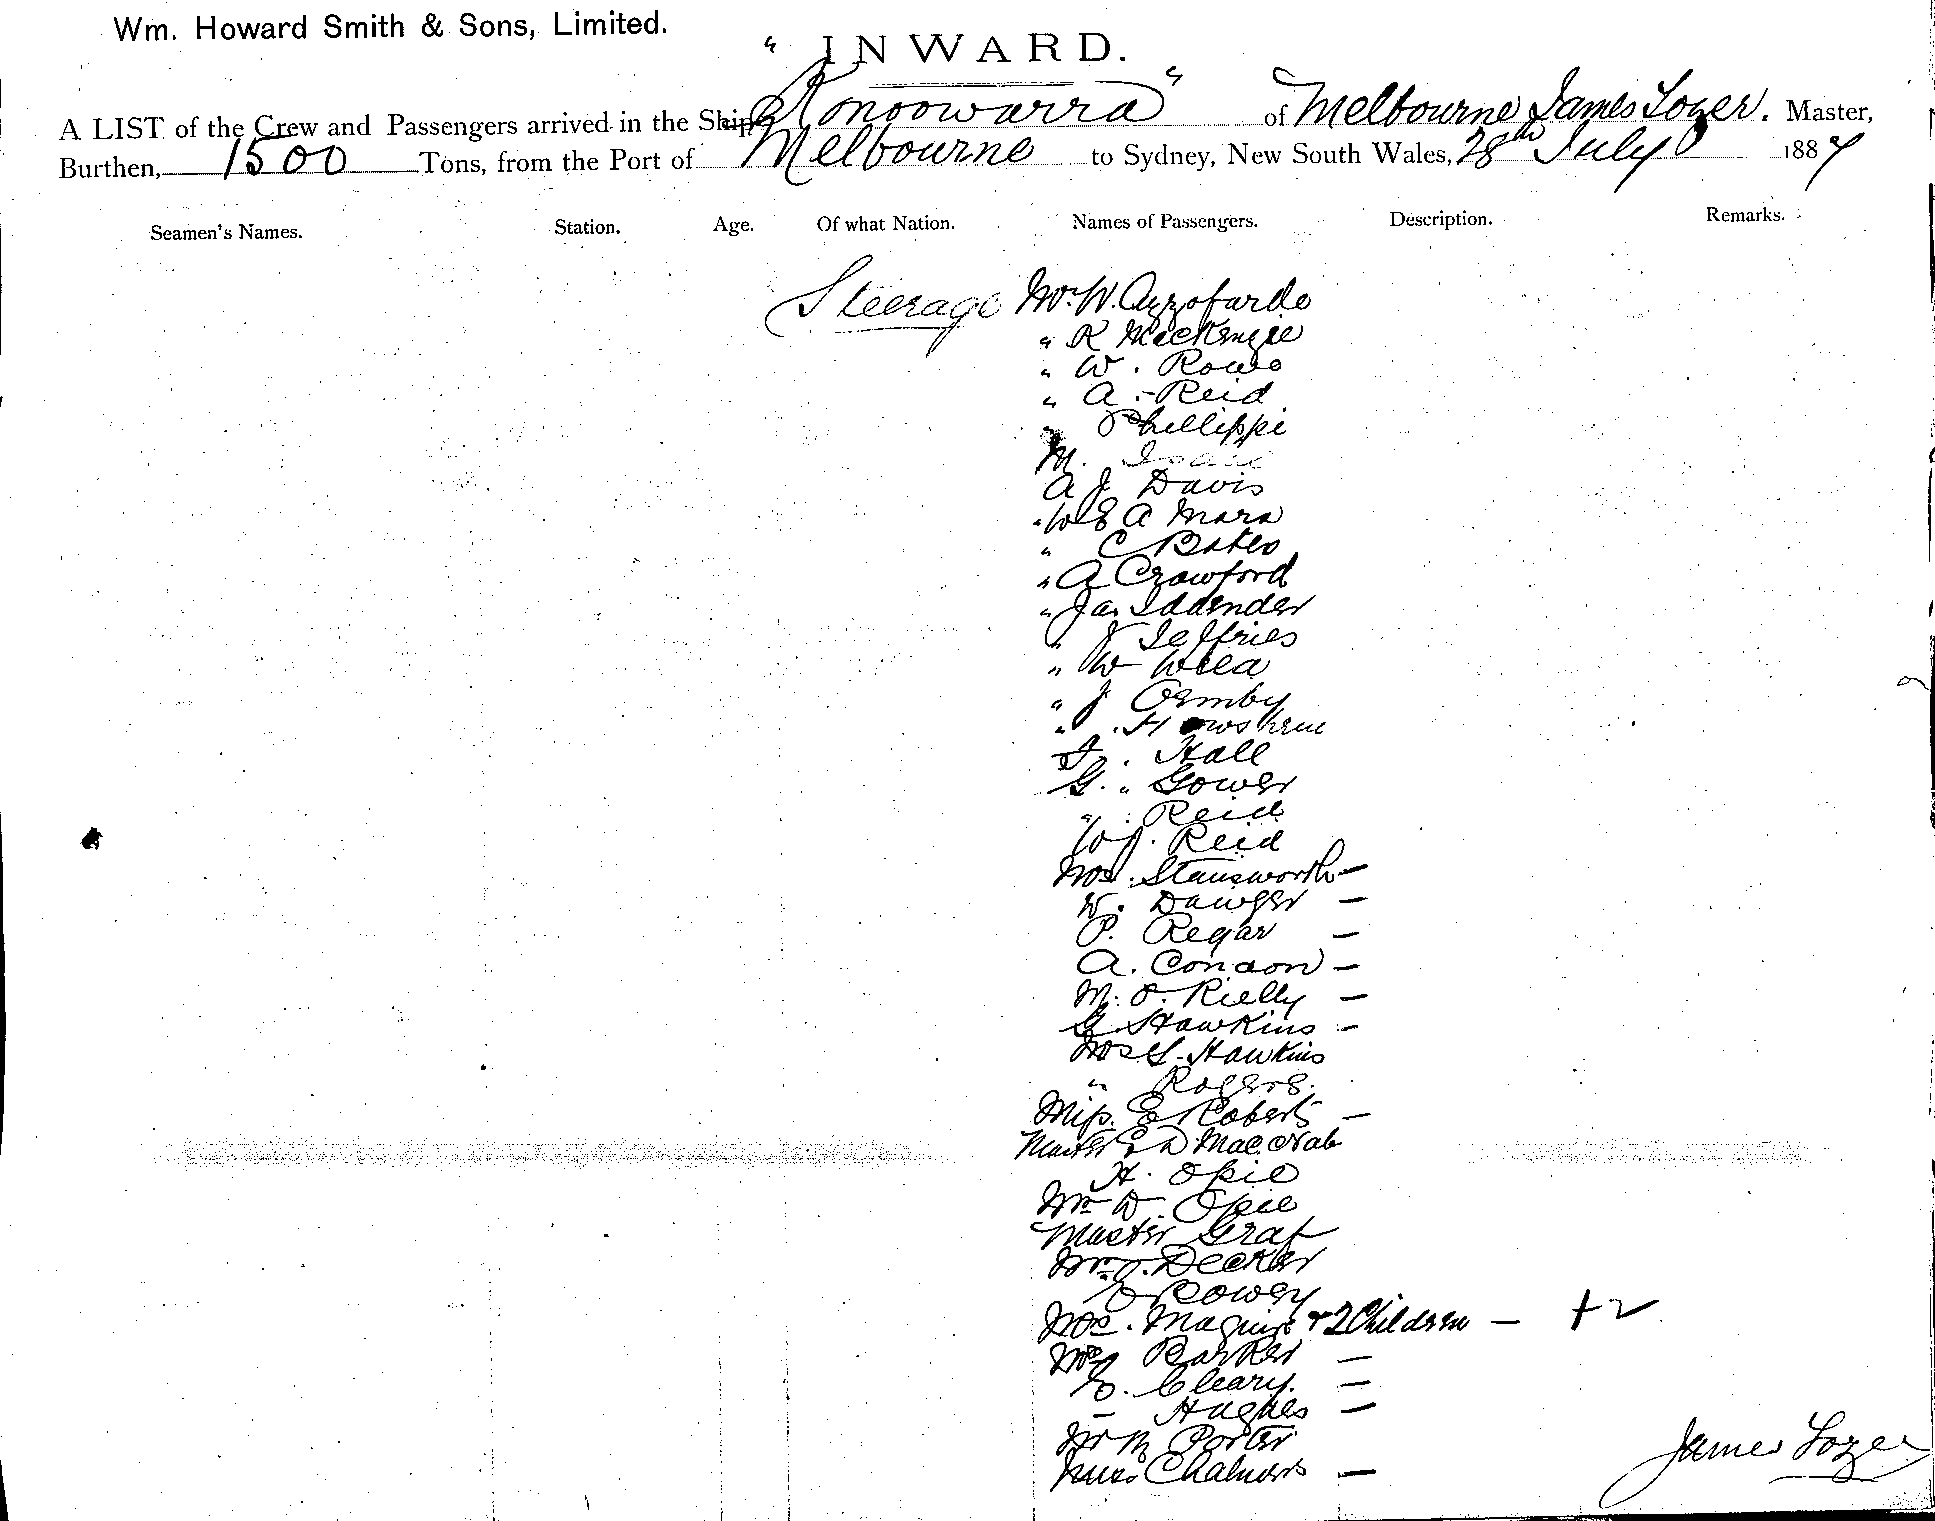 Wm. Howard Smith & Sons, Limited.
" INWARD.
A LIST of the Crew and Passengers arrived in the Ship "Konoowarra" of Melbourne James Lozer. Master,
Burthen, 1500 Tons, from the Port of Melbourne to Sydney, New South Wales, 28th July 1887
Seamen's Names. Station. Age. Of what Nation. Names of Passengers. Description. Remarks.
Steerage Mr. W. Azzofarde
" R MacKenzie
" W. Rowe
" A. Reid
" Phillippi
M. Isaac
A J Davis
" W E A Mara
" C Bates
" A Crawford
" Jas
" J Jeffries
" W
" J Ormby
"
J. Hall
G. " Gower
" Reid
W J. Reid
Mrs. Stansworth —
W. —
P. Regan —
A. Condon —
M. O. Rielly —
G Hawkins —
Mrs G. Hawkins
" Rogers.
Miss. E Roberts —
Master E D MacNab
H. Opie
Mr D. Opie
Master Graf
Mr J. Decker
Rowey
Mrs. Maguire & 2 Children — + 2
Barker —
E. Cleary. —
— Hughes —
Mr M Porter
Miss Chalmers —
James Lozer